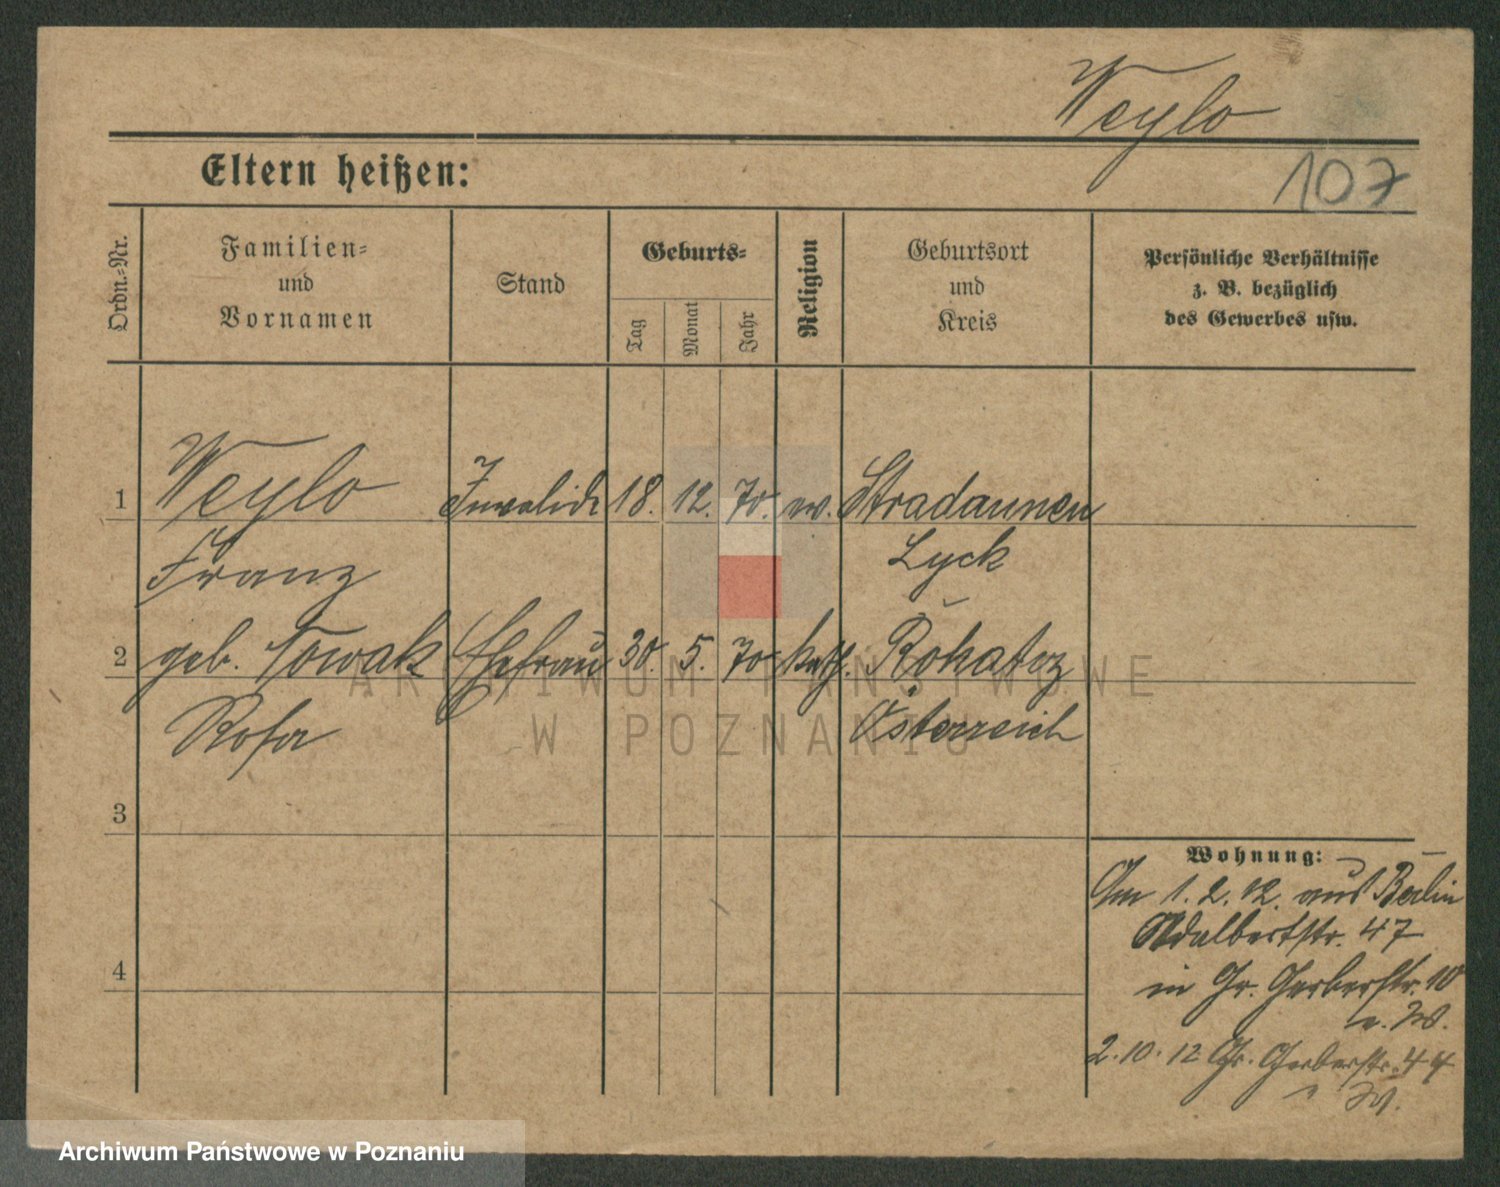 Weylo
107
Eltern heißen:
Ordn.-Nr.
Familien-
und
Vornamen
Stand
Geburts-
Tag
Monat
Jahr
Religion
Geburtsort
und
Kreis
Persönliche Verhältnisse
z. B. bezüglich
des Gewerbes usw.
1 Weylo Invalide 18. 12. 70. ev. Stradaunen
Franz Lyck
2 geb. Nowak Ehefrau 30. 5. 70 kath. Rokatez
Rosa Österreich
3
4
Wohnung:
Am 1. 2. 12. aus Berlin
Adalbertstr. 47
in Gr. Gerberstr. 10
2. 10. 12 Gr. Gerberstr. 44
ARCHIWUM PAŃSTWOWE
W POZNANIU
Archiwum Państwowe w Poznaniu